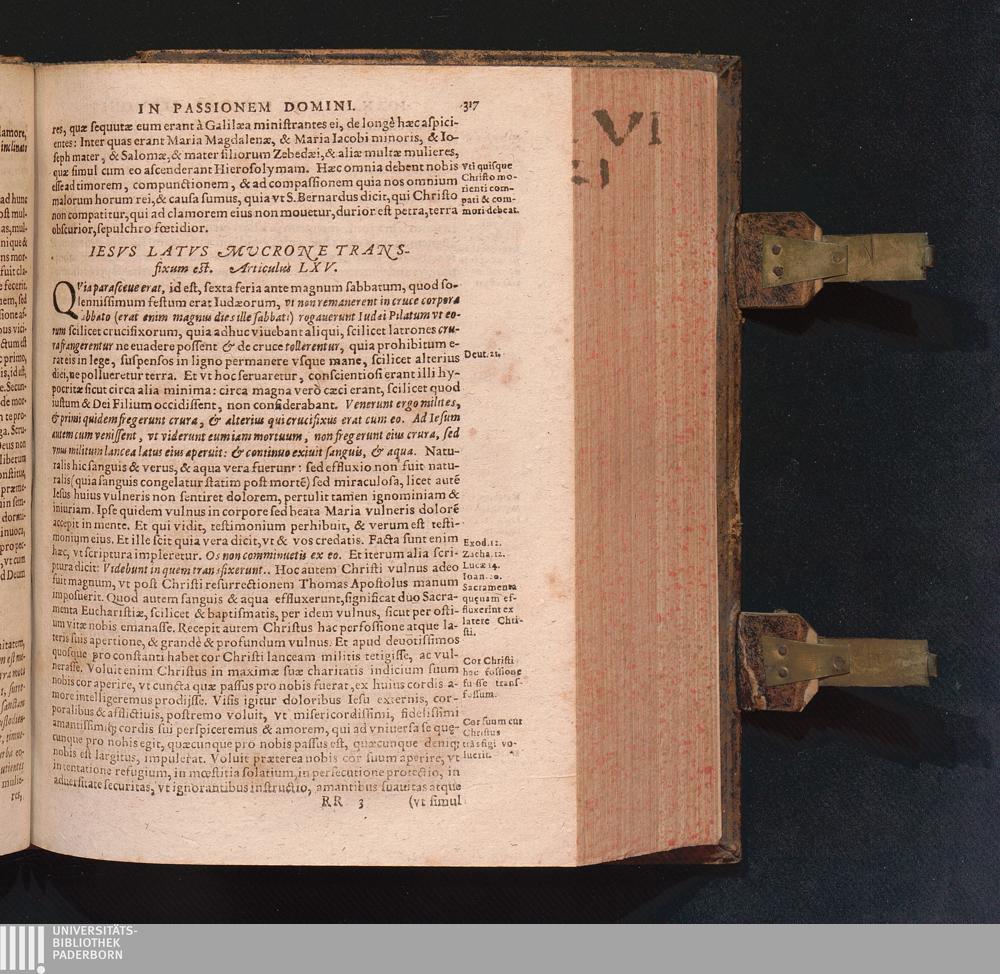 IN PASSIONEM DOMINI. 317
res, quæ sequutæ eum erant à Galilæa ministrantes ei, de longè hæc aspici-
entes: Inter quas erant Maria Magdalenæ, & Maria Iacobi minoris, & Io-
seph mater, & Salomæ, & mater filiorum Zebedæi, & aliæ multæ mulieres,
quæ simul cum eo ascenderant Hierosolymam. Hæc omnia debent nobis
esse ad timorem, compunctionem, & ad compassionem quia nos omnium
malorum horum rei, & causa sumus, quia vt S. Bernardus dicit, qui Christo
non compatitur, qui ad clamorem eius non mouetur, durior est petra, terra
obscurior, sepulchro fœtidior.
Vti quisque
Christo mo-
rienti com-
pati & com-
mori debeat.
IESVS LATVS MVCRONE TRANS-
fixum est. Articulus LXV.
QVia parasceue erat, id est, sexta feria ante magnum sabbatum, quod so-
lennissimum festum erat Iudæorum, vt non remanerent in cruce corpora
sabbato (erat enim magnus dies ille sabbati) rogauerunt Iudei Pilatum vt eo-
rum scilicet crucifixorum, quia adhuc viuebant aliqui, scilicet latrones cru-
ra frangerentur ne euadere possent & de cruce tollerentur, quia prohibitum e-
rat eis in lege, suspensos in ligno permanere vsque mane, scilicet alterius
diei, ne pollueretur terra. Et vt hoc seruaretur, conscientiosi erant illi hy-
pocritæ sicut circa alia minima: circa magna verò cæci erant, scilicet quod
iustum & Dei Filium occidissent, non considerabant. Venerunt ergo milites,
& primi quidem fregerunt crura, & alterius qui crucifixus erat cum eo. Ad Iesum
autem cum venissent, vt viderunt eum iam mortuum, non fregerunt eius crura, sed
vnus militum lancea latus eius aperuit: & continuo exiuit sanguis, & aqua. Natu-
ralis hic sanguis & verus, & aqua vera fuerunt: sed effluxio non fuit natu-
ralis (quia sanguis congelatur statim post mortē) sed miraculosa, licet autē
Iesus huius vulneris non sentiret dolorem, pertulit tamen ignominiam &
iniuriam. Ipse quidem vulnus in corpore sed beata Maria vulneris dolorē
accepit in mente. Et qui vidit, testimonium perhibuit, & verum est testi-
monium eius. Et ille scit quia vera dicit, vt & vos credatis. Facta sunt enim
hæc, vt scriptura impleretur. Os non comminuetis ex eo. Et iterum alia scri-
ptura dicit: Videbunt in quem transfixerunt.. Hoc autem Christi vulnus adeo
fuit magnum, vt post Christi resurrectionem Thomas Apostolus manum
imposuerit. Quod autem sanguis & aqua effluxerunt, significat duo Sacra-
menta Eucharistiæ, scilicet & baptismatis, per idem vulnus, sicut per osti-
um vitæ nobis emanasse. Recepit autem Christus hac perfossione atque la-
teris suis apertione, & grande & profundum vulnus. Et apud deuotissimos
quosque pro constanti habet cor Christi lanceam militis tetigisse, ac vul-
nerasse. Voluit enim Christus in maximæ suæ charitatis indicium suum
nobis cor aperire, vt cuncta quæ passus pro nobis fuerat, ex huius cordis a-
more intelligeremus prodijsse. Visis igitur doloribus Iesu externis, cor-
poralibus & afflictiuis, postremo voluit, vt misericordissimi, fidelissimi
amantissimiq; cordis sui perspiceremus & amorem, qui ad vniuersa se quę-
cunque pro nobis egit, quæcunque pro nobis passus est, quæcunque deniq;
nobis est largitus, impulerat. Voluit præterea nobis cor suum aperire, vt
in tentatione refugium, in mœstitia solatium, in persecutione protectio, in
aduersitate securitas, vt ignorantibus instructio, amantibus suauitas atque
RR 3 (vt simul
Deut. 21.
Exod. 12.
Zacha. 12.
Lucæ 24.
Ioan. 20.
Sacramenta
quęnam ef-
fluxerint ex
latere Chri-
sti.
Cor Christi
hac fossione
fuisse trans-
fossum.
Cor suum cur
Christus
trāsfigi vo-
luerit.
VI
UNIVERSITÄTS-
BIBLIOTHEK
PADERBORN